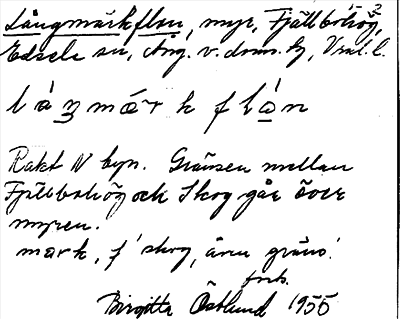 Långmarkflon, myr, Fjällbohög,
Edsele sn, Ång. v. doms. hg, Vnl. l.
Rakt N byn. Gränsen mellan
Fjällbohög och Skog går över
myren.
mark, f 'skog, även gräns'.
Birgitta Östlund 1955